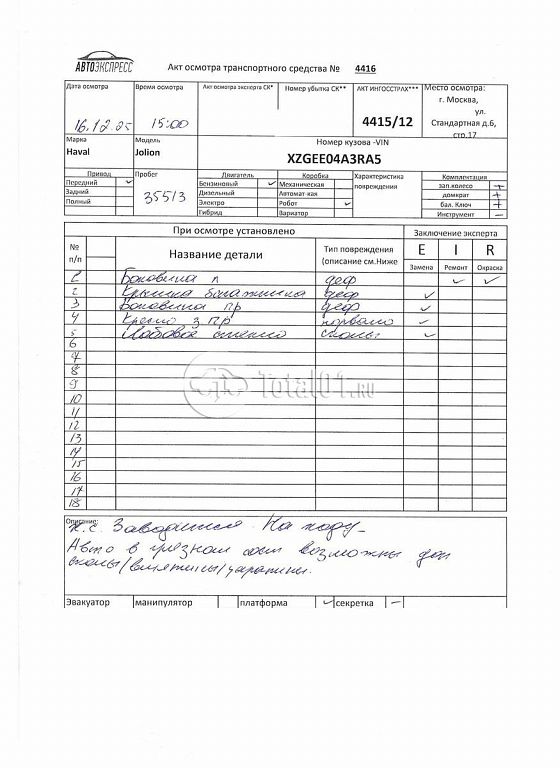 АВТОЭКСПРЕСС
Акт осмотра транспортного средства № 4416
Дата осмотра Время осмотра Акт осмотра эксперта СК* Номер убытка СК** АКТ ИНГОССТРАХ*** Место осмотра:
г. Москва,
ул.
16.12.25 15:00 4415/12 Стандартная д.6,
стр.17
Марка Модель Номер кузова -VIN
Haval Jolion XZGEE04A3RA5
Привод Пробег Двигатель Коробка Характеристика повреждения Комплектация
Передний ✓ 35513 Бензиновый ✓ Механическая зап.колесо +
Задний Дизельный Автомат-кая домкрат +
Полный Электро Робот ✓ бал. Ключ +
Гибрид Вариатор Инструмент –
При осмотре установлено Заключение эксперта
№ п/п Название детали Тип повреждения (описание см.Ниже E I R
Замена Ремонт Окраска
1 Боковина л деф ✓ ✓
2 Крышка багажника деф ✓
3 Боковина пр деф ✓
4 Кресло з пр порвано ✓
5 Лобовое стекло сколы ✓
6
7
8
9
10
11
12
13
14
15
16
17
18
Total01.RU
Описание:
Заводится На ходу
Авто в грязном сост возможны доп
сколы/вмятины/царапины.
Эвакуатор манипулятор платформа ✓ секретка –